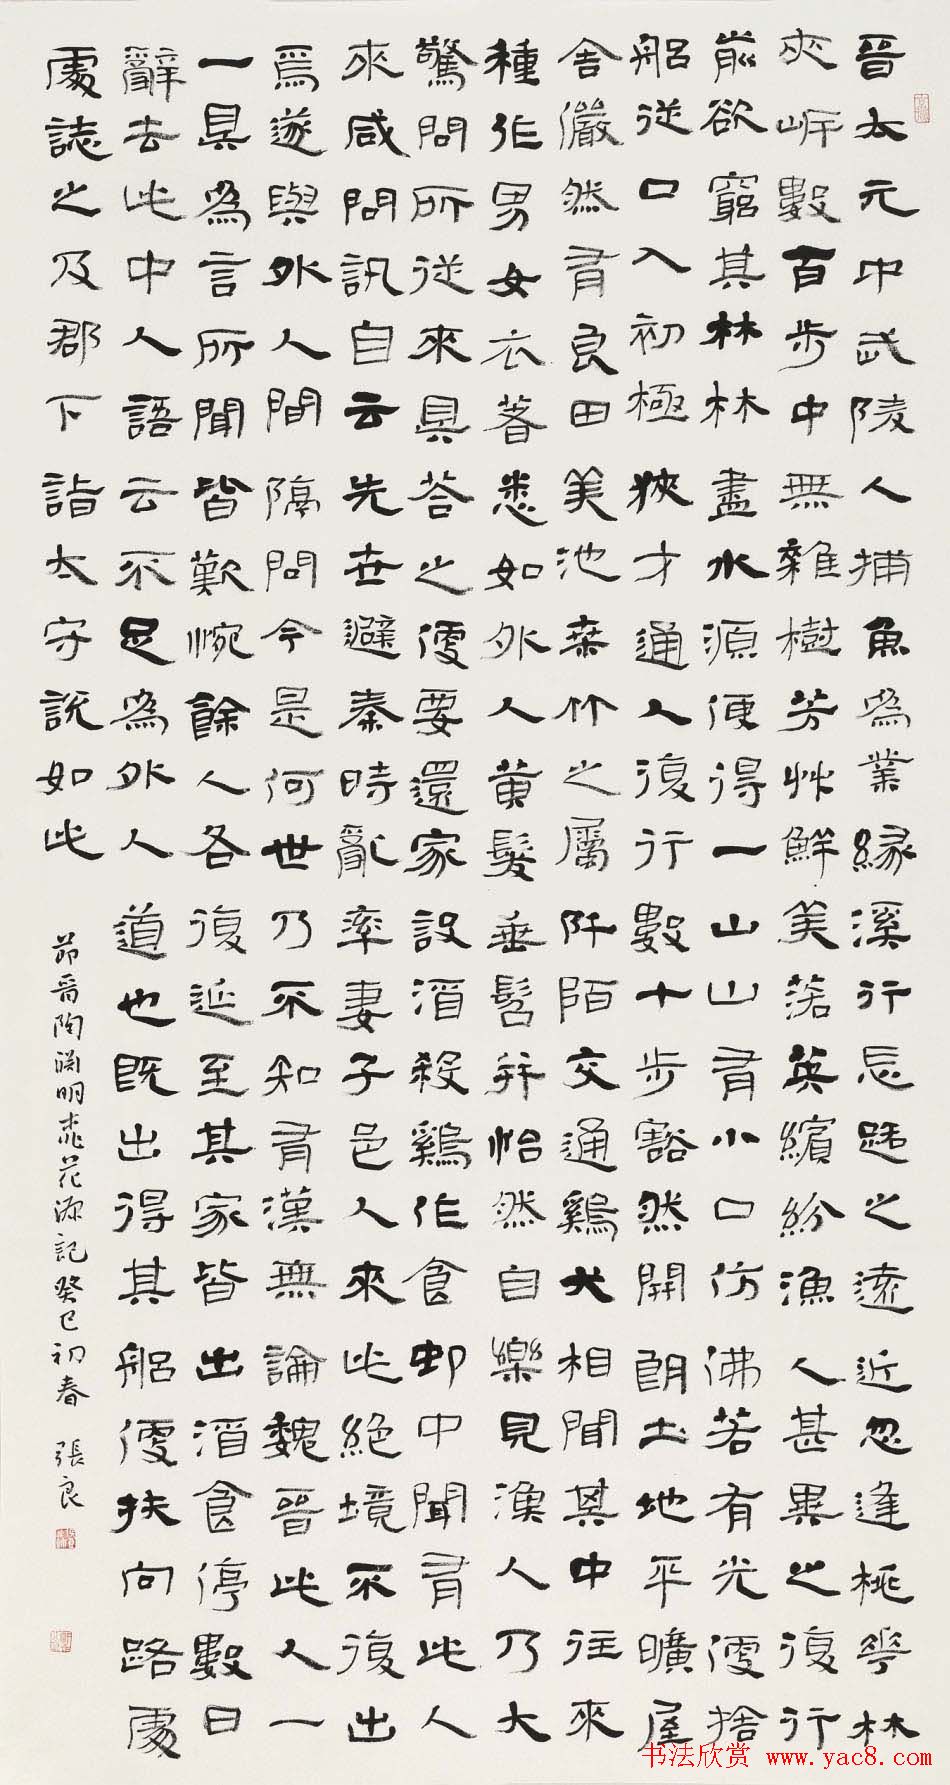 晉太元中武陵人捕魚為業緣溪行忘路之遠近忽逢桃華林
夾岸數百步中無雜樹芳艸鮮美落英繽紛漁人甚異之復行
前欲窮其林林盡水源便得一山山有小口仿佛若有光便捨
船從口入初極狹才通人復行數十步豁然開朗土地平曠屋
舍儼然有良田美池桑竹之屬阡陌交通鷄犬相聞其中往來
種作男女衣著悉如外人黃髮垂髫并怡然自樂見漁人乃大
驚問所從來具答之便要還家設酒殺鷄作食邨中聞有此人
來咸問訊自云先世避秦時亂率妻子邑人來此絕境不復出
焉遂與外人間隔問今是何世乃不知有漢無論魏晉此人一
一具為言所聞皆歎惋餘人各復延至其家皆出酒食停數日
辭去此中人語云不足為外人道也既出得其船便扶向路處
處誌之及郡下詣太守說如此
節晉陶淵明桃花源記癸巳初春 張良
书法欣赏 www.yac8.com